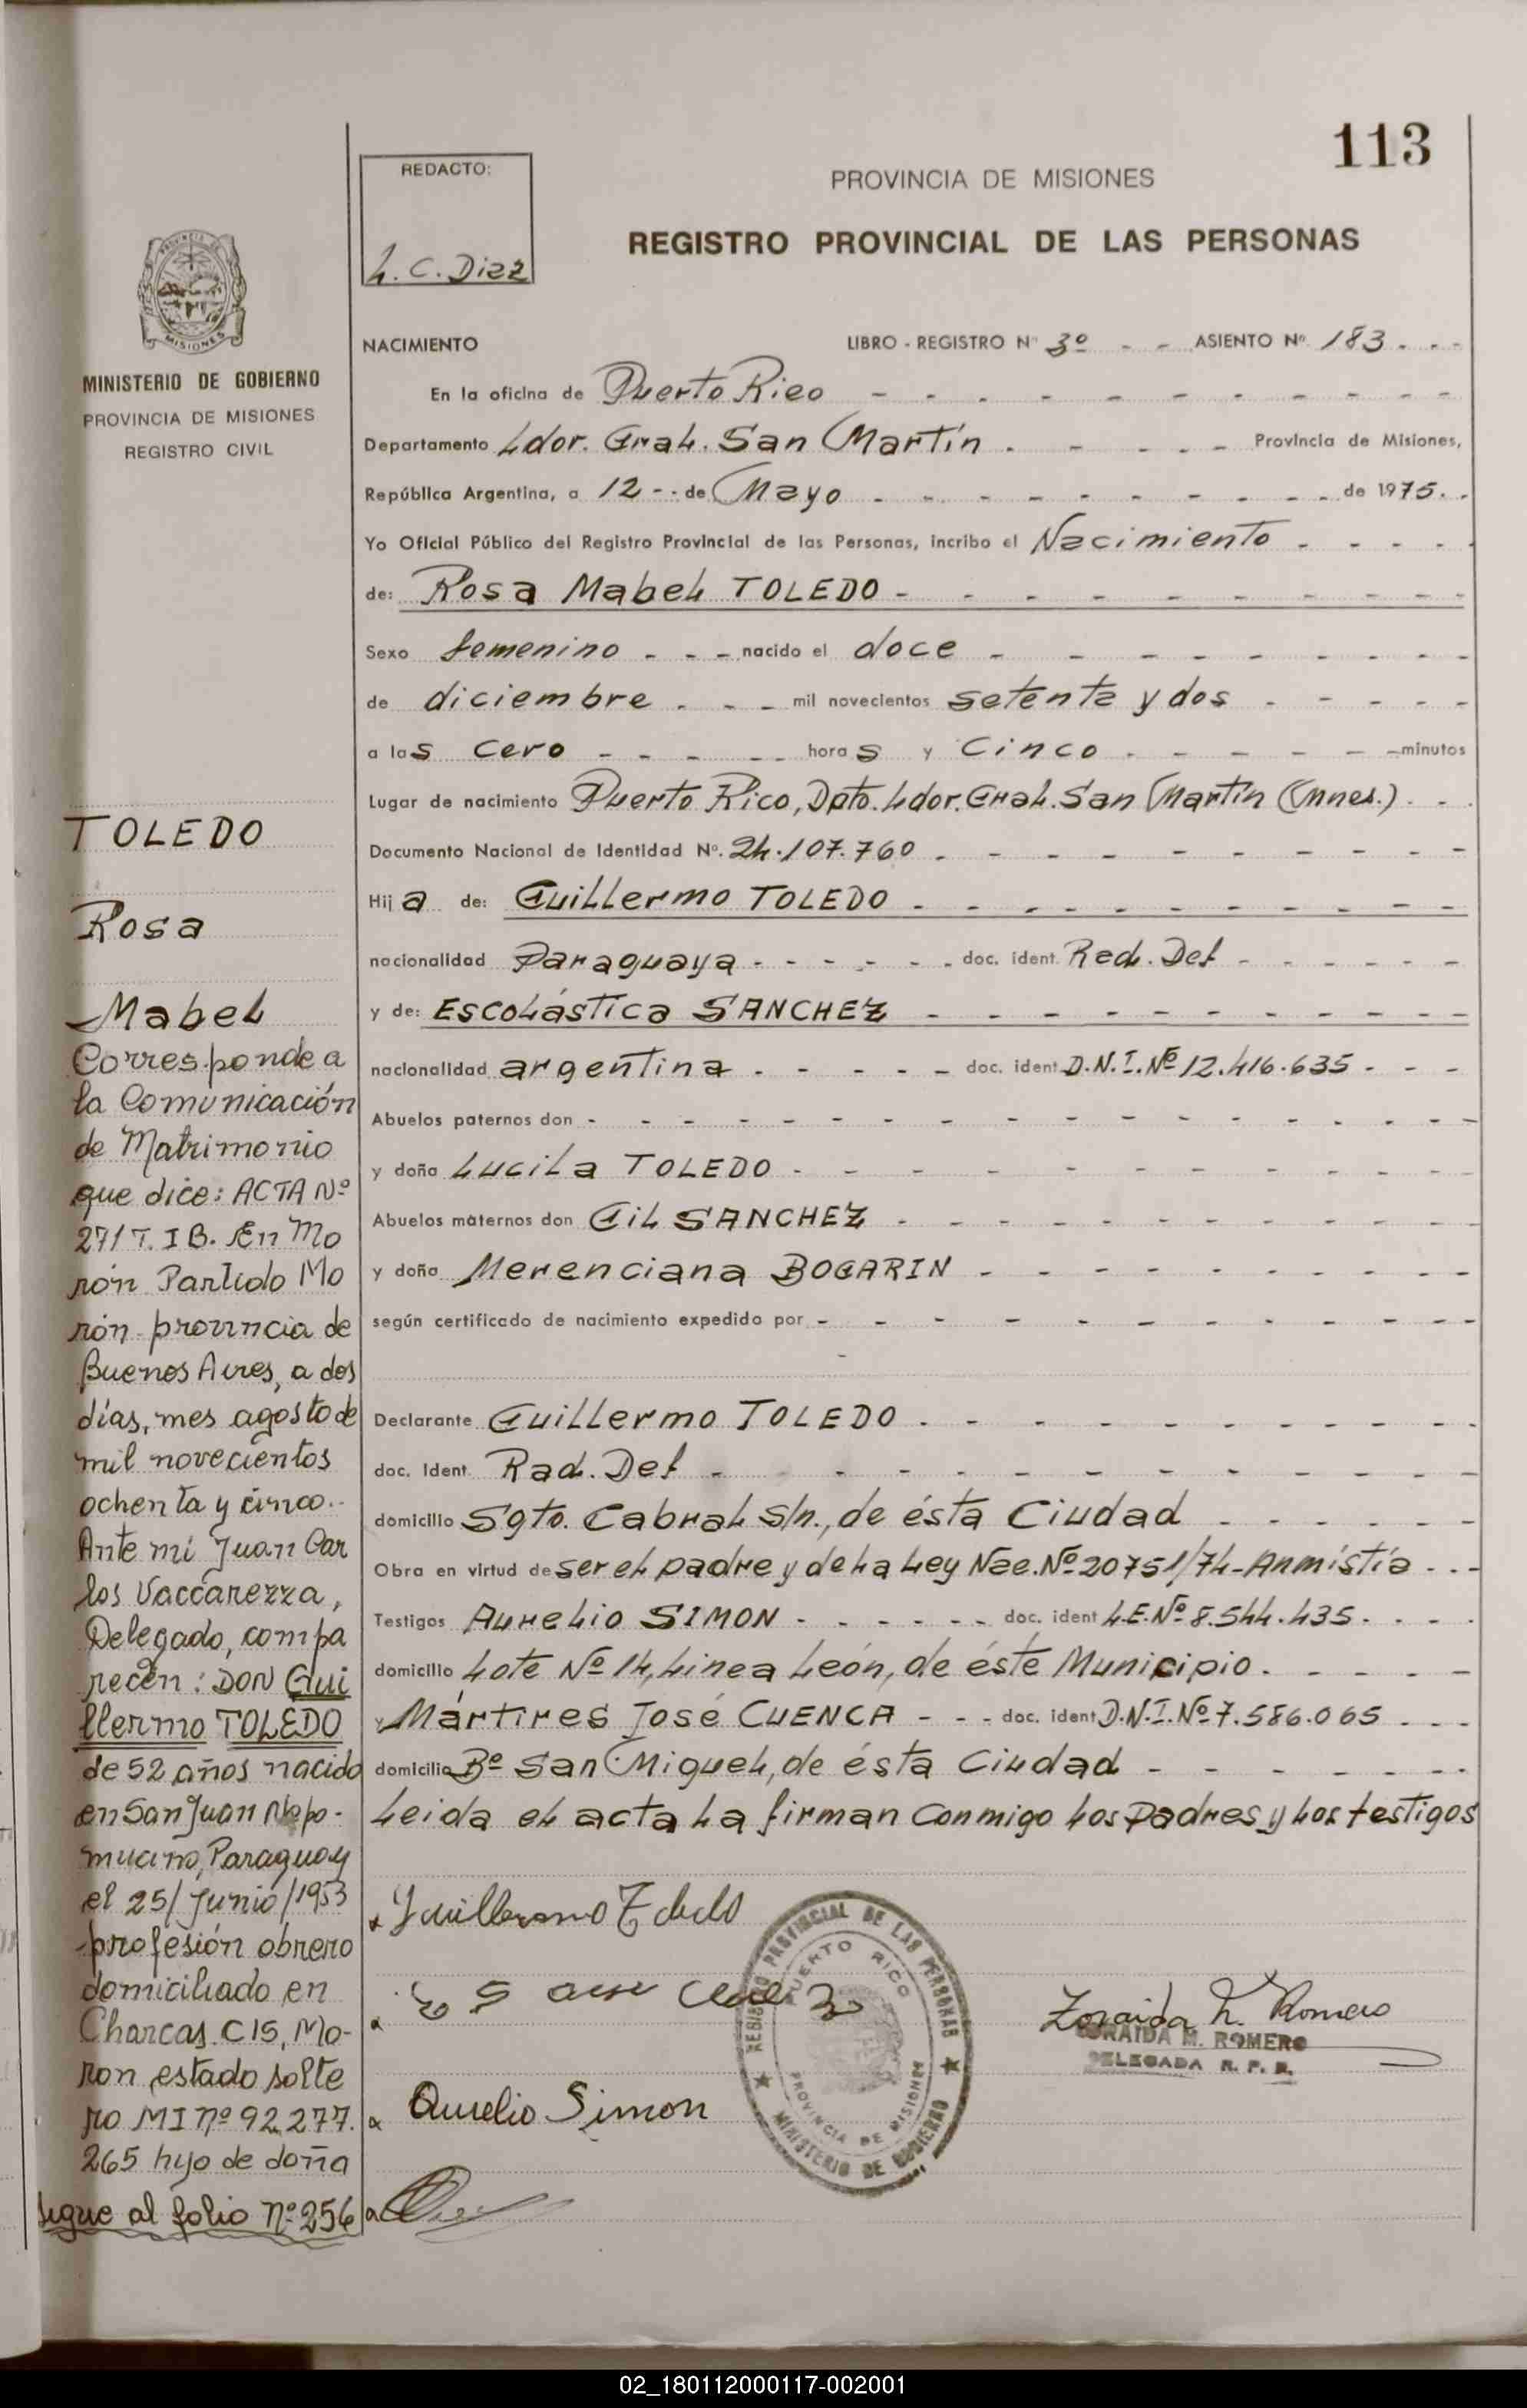 113
REDACTO:
L. C. Diaz
PROVINCIA DE MISIONES
REGISTRO PROVINCIAL DE LAS PERSONAS
PROVINCIA DE
MISIONES
MINISTERIO DE GOBIERNO
PROVINCIA DE MISIONES
REGISTRO CIVIL
NACIMIENTO LIBRO - REGISTRO Nº 3º - - ASIENTO Nº 183 - - -
En la oficina de Puerto Rico - - - - - - - - - -
Departamento Ldor. Gral. San Martín - - - - - Provincia de Misiones,
República Argentina, a 12 - - de Mayo - - - - - - - - - de 1975. -
Yo Oficial Público del Registro Provincial de las Personas, incribo el Nacimiento - - - -
de: Rosa Mabel TOLEDO - - - - - - - - - -
Sexo femenino - - - nacido el doce - - - - - - - -
de diciembre - - - mil novecientos setenta y dos - - - - -
a las cero - - - - - horas y cinco - - - - - - minutos
Lugar de nacimiento Puerto Rico, Dpto. Ldor. Gral. San Martín (Mnes.) - -
Documento Nacional de Identidad Nº. 24.107.760 - - - - - - - - -
Hija de: Guillermo TOLEDO - - - - - - - - - -
nacionalidad Paraguaya - - - - - - doc. ident. Rad. Def - - - - - -
y de: Escolástica SANCHEZ - - - - - - - - - -
nacionalidad argentina - - - - - doc. ident. D.N.I. Nº 12.416.635 - - -
Abuelos paternos don - - - - - - - - - - - - -
y doña Lucila TOLEDO - - - - - - - - - -
Abuelos maternos don Gil SANCHEZ - - - - - - - - - -
y doña Merenciana BOGARIN - - - - - - - - -
según certificado de nacimiento expedido por - - - - - - - - - - -
-
Declarante Guillermo TOLEDO - - - - - - - - -
doc. Ident. Rad. Def - - - - - - - - - - -
domicilio Sgto. Cabral s/n., de ésta Ciudad - - - - - -
Obra en virtud de ser el padre y de la Ley Nac. Nº 20751/74-Anmistía - - -
Testigos Aurelio SIMON - - - - - - doc. ident L.E. Nº 8.544.435 - - - -
domicilio Lote Nº 14, Linea León, de éste Municipio - - - - -
y Mártires José CUENCA - - - doc. ident D.N.I. Nº 7.586.065 - - -
domicilio Bº San Miguel, de ésta Ciudad - - - - - - -
Leida el acta la firman conmigo los padres y los testigos
TOLEDO
Rosa
Mabel
Corresponde a
la Comunicación
de Matrimonio
que dice: ACTA Nº
271 T. I B. En Mo
rón Partido Mo
rón provincia de
Buenos Aires, a dos
días, mes agosto de
mil novecientos
ochenta y cinco.-
Ante mí Juan Car
los Vaccarezza,
Delegado, compa
recen: DON Gui
llermo TOLEDO
de 52 años nacido
en San Juan Nepo-
muceno, Paraguay
el 25/junio/1953
profesión obrero
domiciliado en
Charcas C15, Mo-
ron estado solte
ro MI nº 92.277.
265 hijo de doña
sigue al folio Nº 256
Guillermo Toledo
Aurelio Simon
REGISTRO PROVINCIAL DE LAS PERSONAS
PUERTO RICO
PROVINCIA DE MISIONES
MINISTERIO DE GOBIERNO
Zoraida M. Romero
ZORAIDA M. ROMERO
DELEGADA R. P. P.
02_180112000117-002001